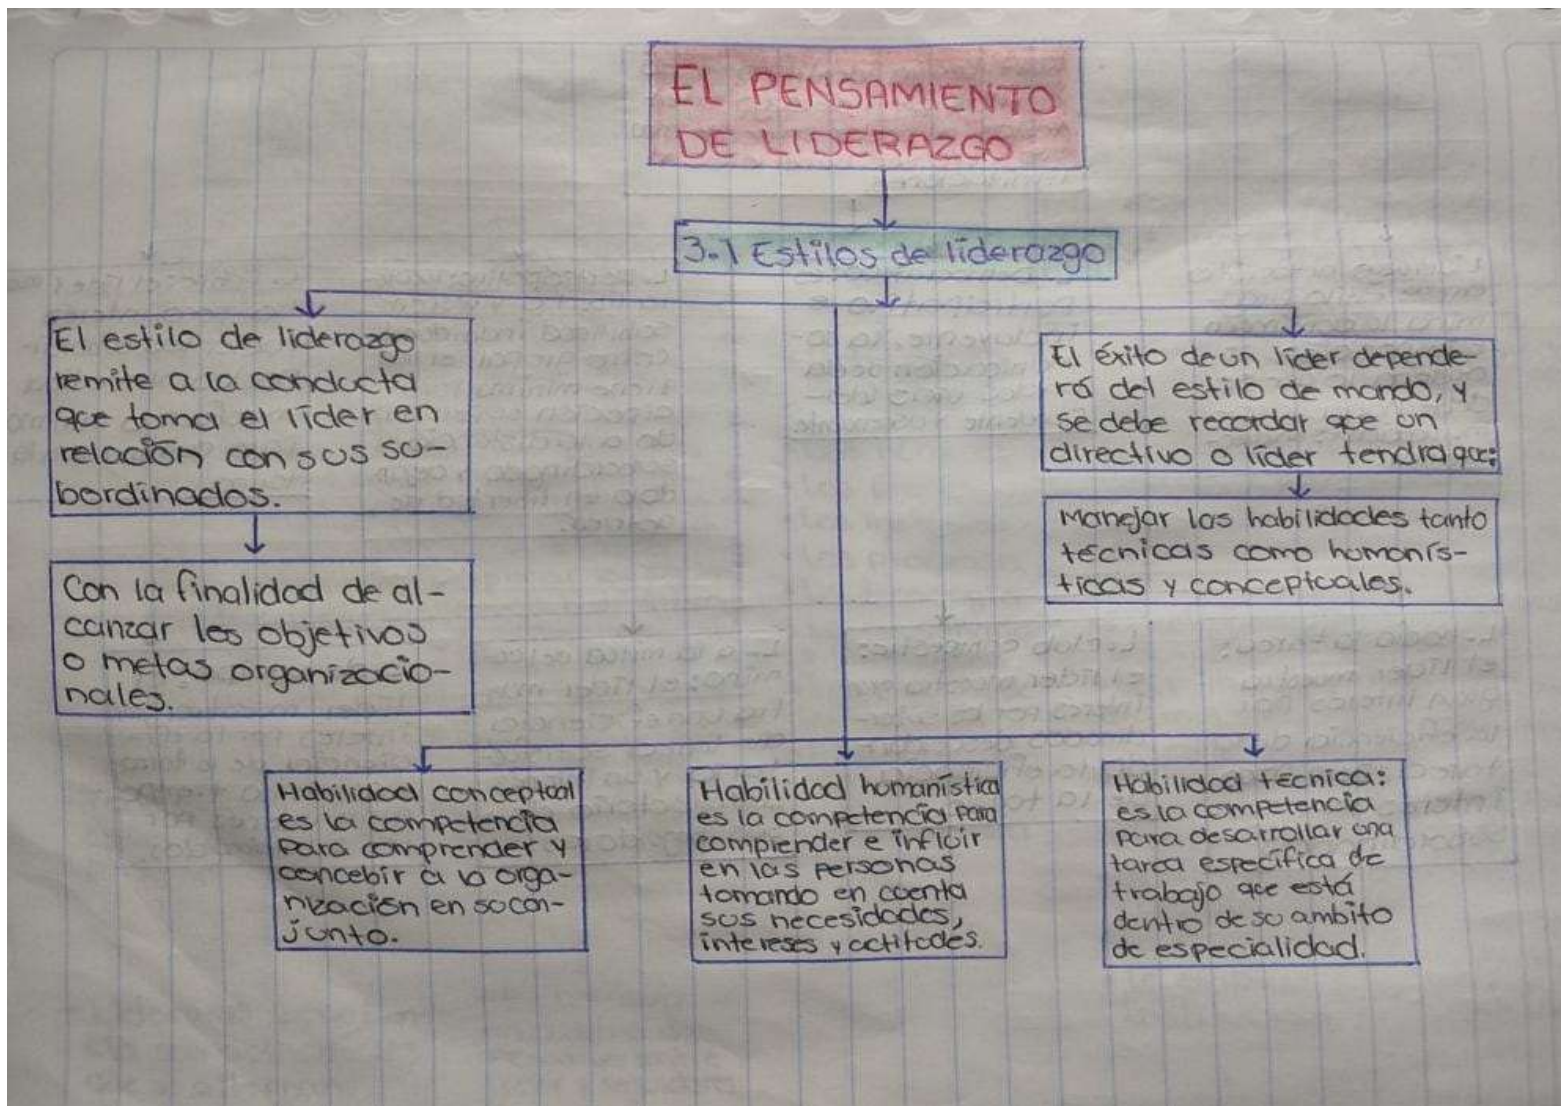 EL PENSAMIENTO
DE LIDERAZGO
3.1 Estilos de liderazgo
El estilo de liderazgo
remite a la conducta
que toma el líder en
relación con sus su-
bordinados.
Con la finalidad de al-
canzar los objetivos
o metas organizacio-
nales.
El éxito de un líder depende-
rá del estilo de mando, y
se debe recordar que un
directivo o líder tendra que:
Manejar las habilidades tanto
técnicas como humanís-
ticas y conceptuales.
Habilidad conceptual
es la competencia
para comprender y
concebir a la orga-
nización en su con-
junto.
Habilidad humanística
es la competencia para
comprender e influir
en las personas
tomando en cuenta
sus necesidades,
intereses y actitudes.
Habilidad técnica:
es la competencia
para desarrollar una
tarea específica de
trabajo que está
dentro de su ambito
de especialidad.